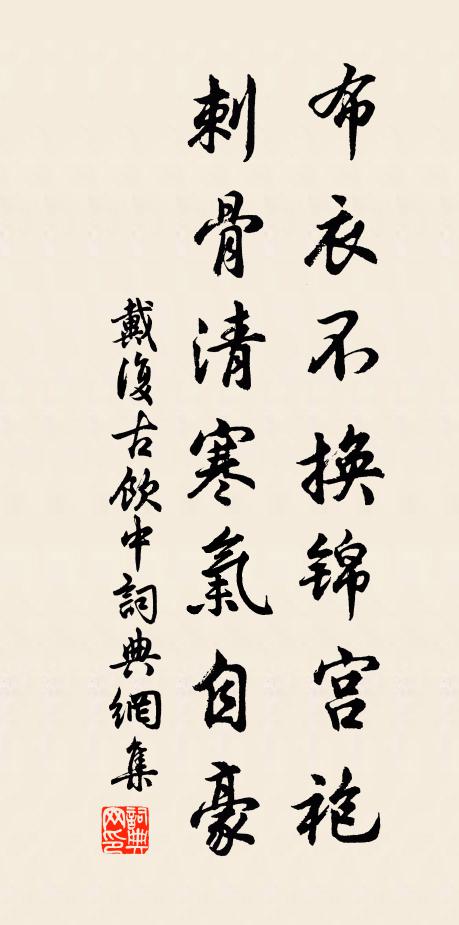 布衣不换锦宫袍
刺骨清寒氣自豪
戴復古飲中詞典網集
詞典
网印